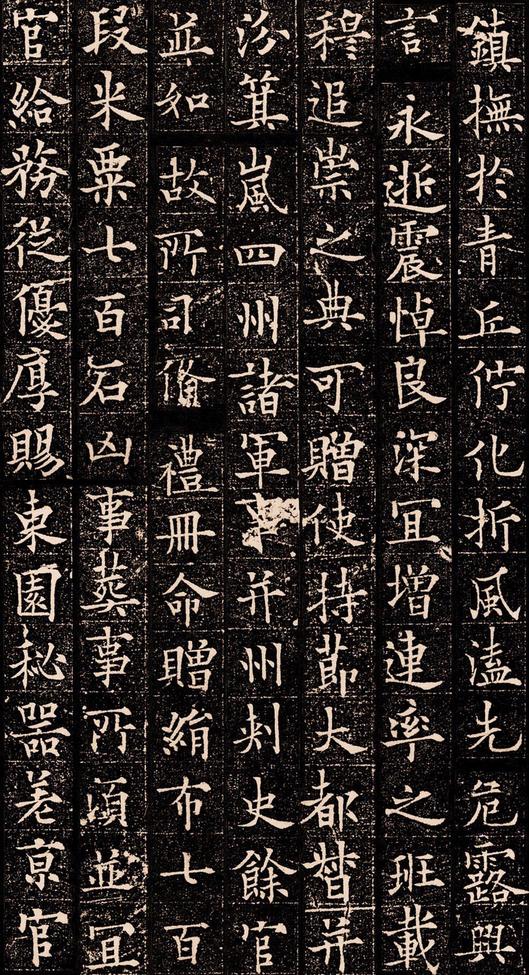 鎮撫於青丘佇化折風溘先危露興
言永逝震悼良深冝增連率之班載
穆追崇之典可贈使持節大都督并
汾箕嵐四州諸軍事并州刺史餘官
並如故所司俻禮冊命贈絹布七百
段米粟七百石凶事葬事所須並冝
官給務從優厚賜東園秘器差亰官